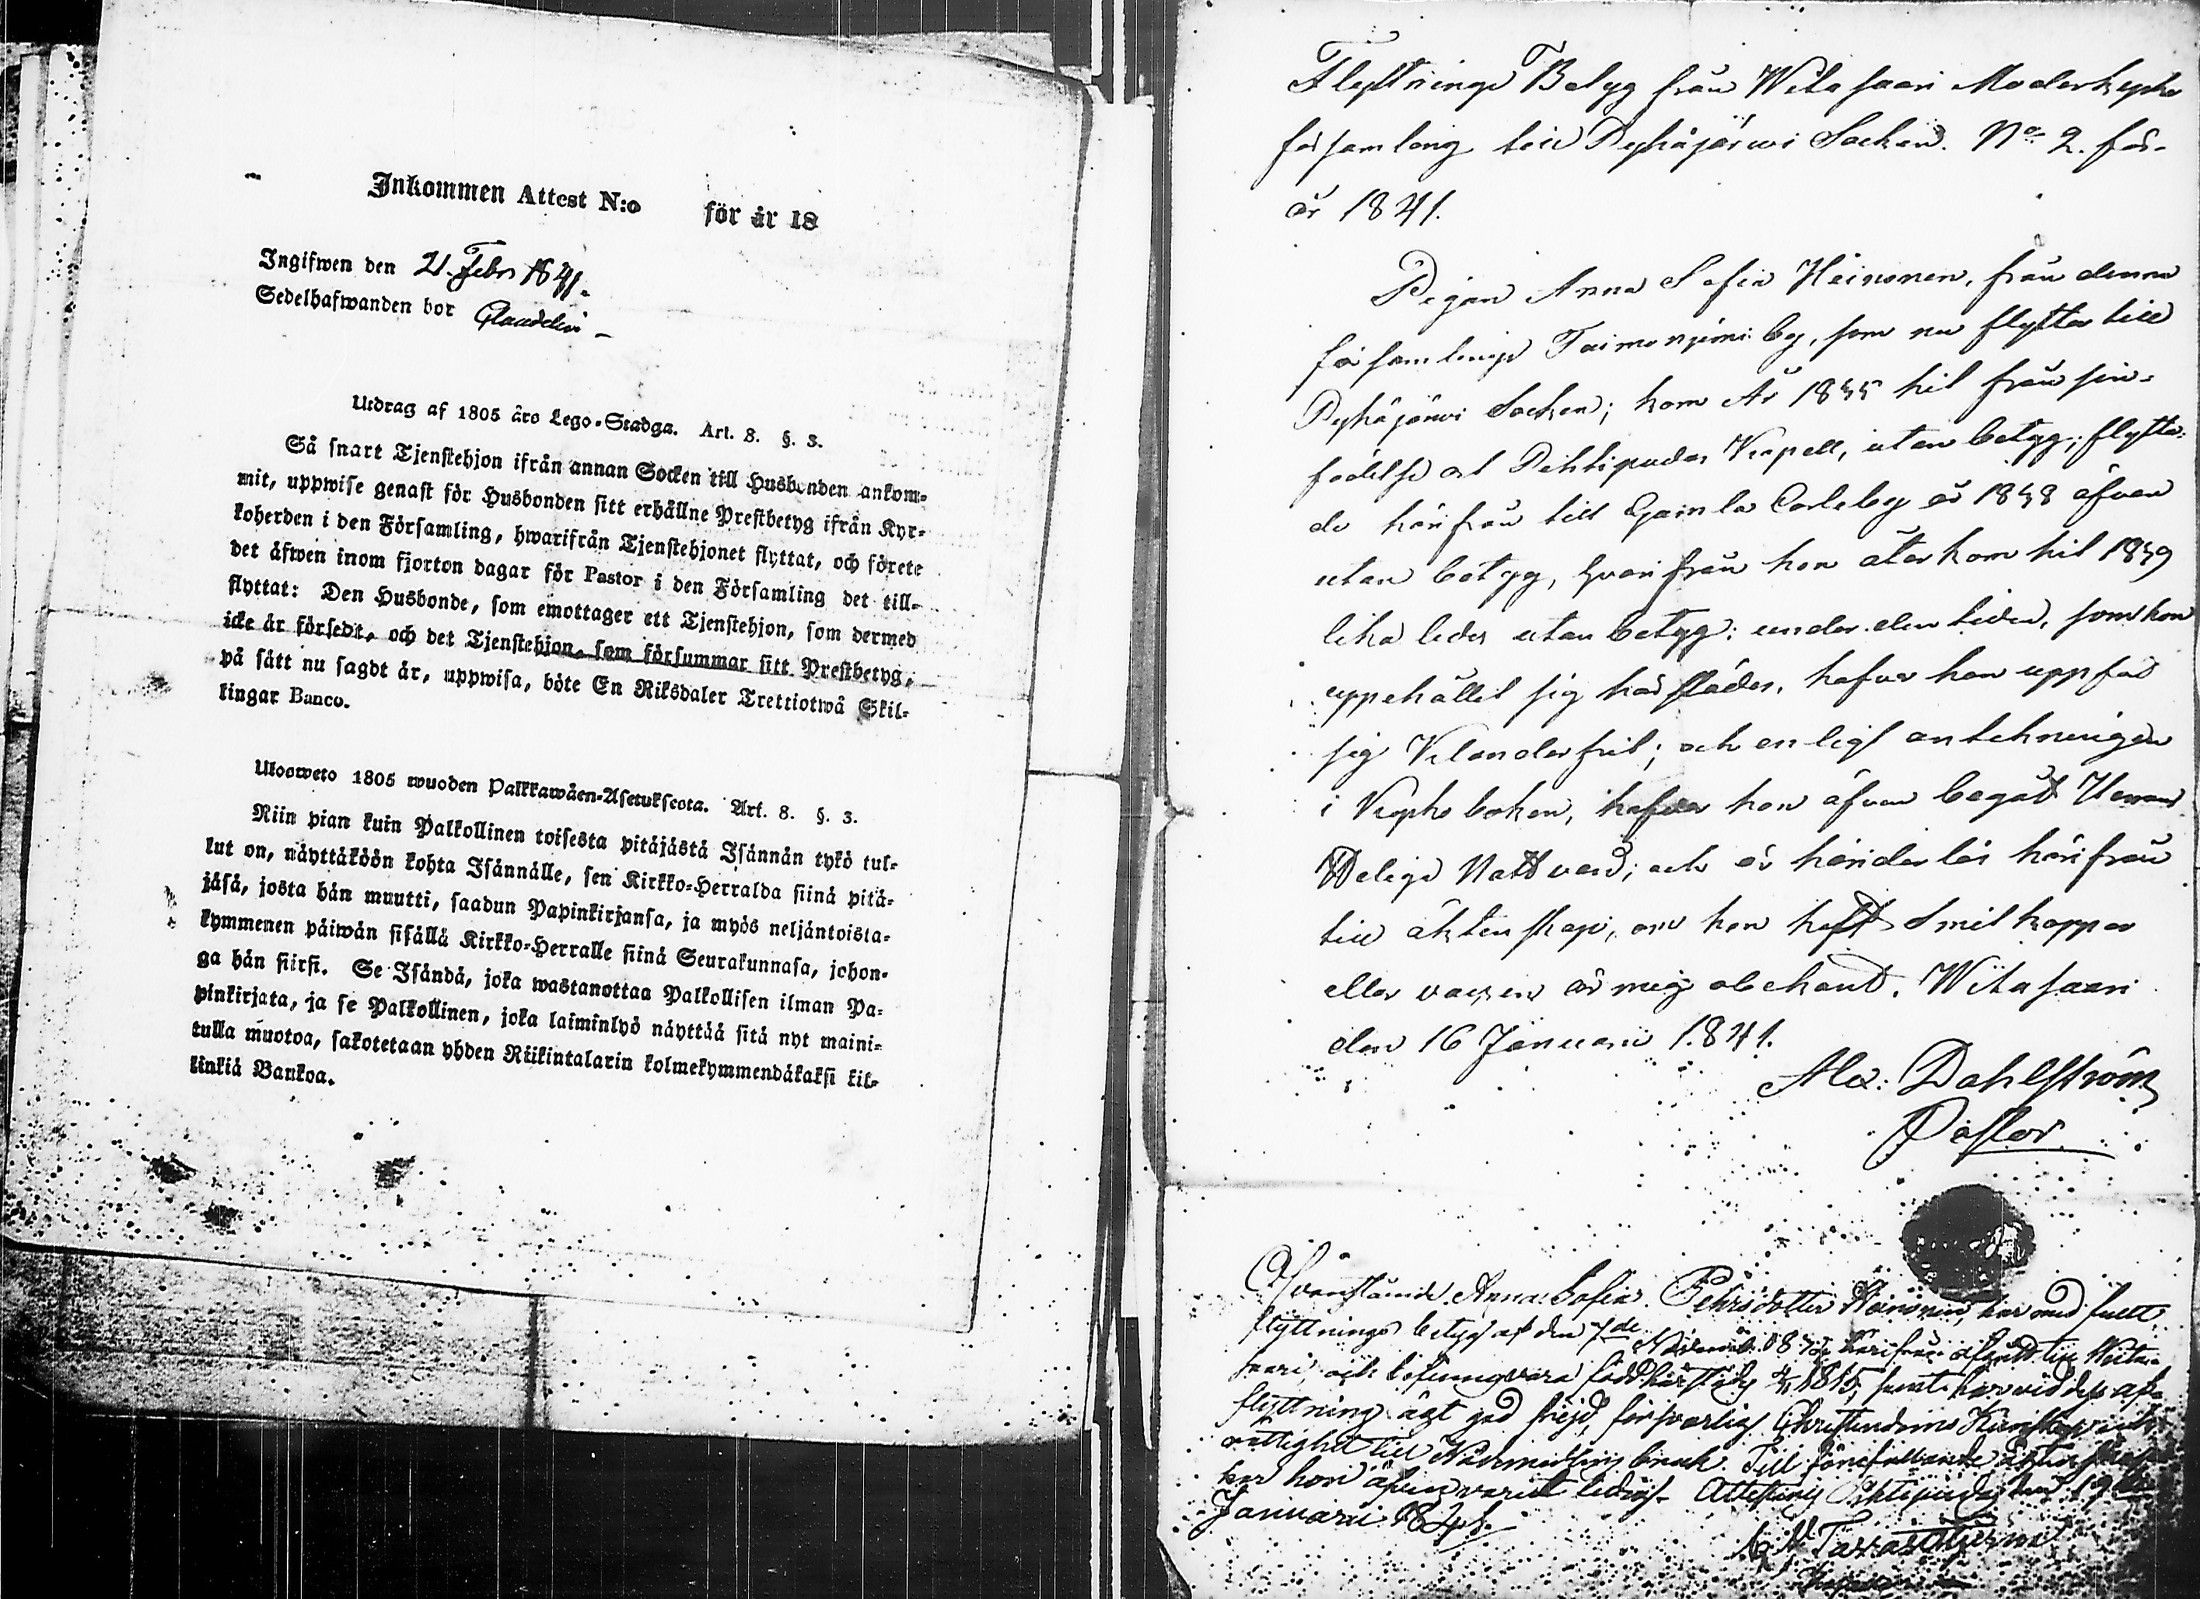 Inkommen Attest N:o för år 18
Ingifwen den 21. Febr 1841.
Sedelhafwanden bor
Utdrag af 1805 års Lego-Stadga. Art. 8. §. 3.
Så snart Tjenstehjon ifrån annan Socken till Husbonden ankom-
mit, uppwise genast för Husbonden sitt erhållne Prestbetyg ifrån Kyr-
koherden i den Församling, hwarifrån Tjenstehjonet flyttat, och förete
det äfwen inom fjorton dagar för Pastor i den Församling det till-
flyttat: Den Husbonde, som emottager ett Tjenstehjon, som dermed
icke är försedt, och det Tjenstehjon, som försummar sitt Prestbetyg,
på sätt nu sagdt är, uppwisa, böte En Riksdaler Trettiotwå Skil-
lingar Banco.
Ulosweto 1805 wuoden Palkkawäen-Asetuksesta. Art. 8. §. 3.
Niin pian kuin Palkollinen toisesta pitäjästä Isännän tykö tul-
lut on, näyttäköön kohta Isännälle, sen Kirkko-Herralda siinä pitä-
jäsä, josta hän muutti, saadun Papinkirjansa, ja myös neljäntoista-
kymmenen päiwän sisällä Kirkko-Herralle siinä Seurakunnasa, johon-
ga hän siirsi. Se Isändä, joka wastanottaa Palkollisen ilman Pa-
pinkirjata, ja se Palkollinen, joka laiminlyö näyttää sitä nyt maini-
tulla muotoa, sakotetaan yhden Riikintalarin kolmekymmendäkaksi kil-
linkiä Bankoa.
Flyttnings Betyg från Witasaari Moderkyrko
församling till Pyhäjärwi Socken. No 2. för
år 1841.
Pigan Anna Sofia Heinonen, från denna
församlings Taimoniemi by, som nu flyttar till
Pyhäjärwi Socken; kom År 1835 hit från sin
födelse ort Pihtipudas Kapell, utan betyg; flytta-
de härifrån till Gamla Carleby år 1838 äfven
utan betyg, hvarifrån hon återkom hit 1839
lika ledes utan betyg; under den tiden, som hon
uppehållit sig härstädes, hafver hon uppfört
sig klanderfrit; och enligt anteckningen
i Kyrkoboken, hafver hon äfven begått Herrans
Heliga Nattvard; och är hinderlös härifrån
till äktenskap, om hon haft Smitkoppor
eller vaccin är mig obekant. Witasaari
den 16 Januarii 1841.
Alex: Dahlström
Pastor
Ofvanstående Anna Sofia Pehrsdotter Heinonen, har med
flyttnings betyg af den 7de härifrån afflyttat till Wita-
saari, och befinnes vara född härstädes 1815, samt har vid dess af-
flyttning ägt god frejd, försvarlig Christendoms Kunskap och
rättighet till Nådemedlens bruk. Till äktenskap
har hon äfven varit ledig. Attesterar Pihtipudas den 19
Januarii 1841.